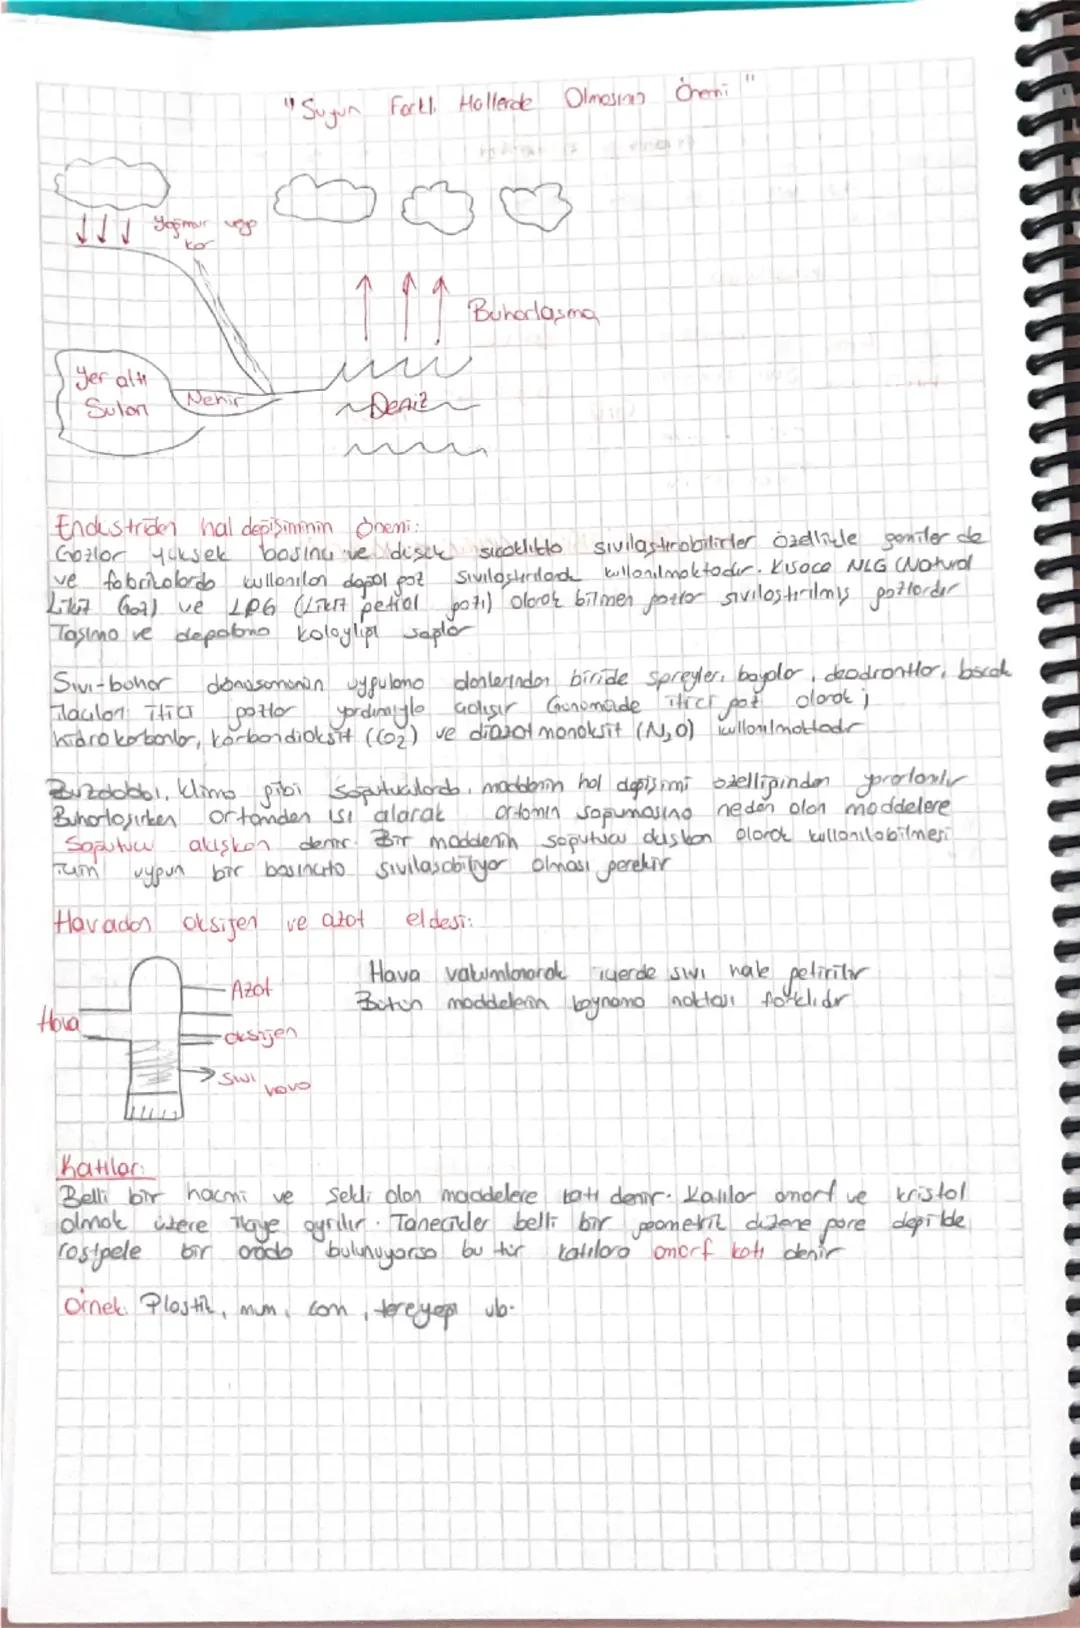 "Suyun Farklı Hallerde Olmasının Önemi"
Yağmur veya
kar
Buharlaşma
Yer altı
Suları
Nehir
Deniz
Endüstriden hal değişiminin önemi:
Gazlar yüksek basınç ve düşük sıcaklıkta sıvılaştırabilirler özellikle gemiler de
ve fabrikalarda kullanılan doğal gaz sıvılaştırılarak kullanılmaktadır. Kısaca NLG (Natural
Likit Gaz) ve LPG (Likit petrol gazı) olarak bilinen gazlar sıvılaştırılmış gazlardır
Taşıma ve depolama kolaylığı sağlar
Sıvı-buhar dönüşümünün uygulama alanlarından biride spreyler, boyalar, deodrontlar, böcek
ilaçları itici gazlar yardımıyla çalışır Günümüzde itici gaz olarak;
hidrokorbonlar, karbondioksit (CO₂) ve diazot monoksit (N₂O) kullanılmaktadır
Buzdolabı, klima gibi soğutucularda, maddenin hal değişimi özelliğinden yararlanılır
Buharlaşırken ortamdan ısı alarak ortamın soğumasına neden olan maddelere
Soğutucu akışkan denir. Bir maddenin soğutucu akışkan olarak kullanılabilmesi
için uygun bir basınçta sıvılaşabiliyor olması gerekir
Havadan oksijen ve azot eldesi:
Hava vakumlanarak içerde sıvı hale getirilir
Azot
Bütün maddelerin kaynama noktası farklıdır
Hava
oksijen
Sıvı hava
Katılar:
Belli bir hacmi ve şekli olan maddelere katı denir. Katılar amorf ve kristal
olmak üzere ikiye ayrılır. Tanecikler belli bir geometrik düzene göre değilde
rastgele bir arada bulunuyorsa bu tür katılara amorf katı denir
Örnek: Plastik, mum, cam, tereyağı vb.